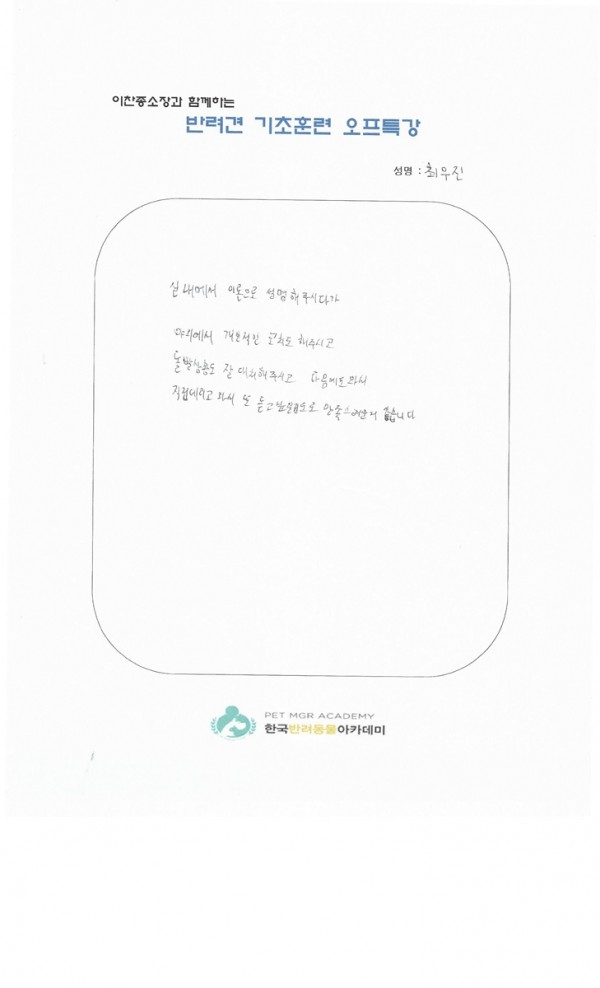 이찬종소장과 함께하는
반려견 기초훈련 오프특강
성명 : 최우진
실내에서 이론으로 설명해주시다가
야외에서 개인적인 교육도 해주시고
돌발상황도 잘 대처해주시고 다음에도 와서
직접데리고 와서 또 듣고 싶습니다
PET MGR ACADEMY
한국반려동물아카데미